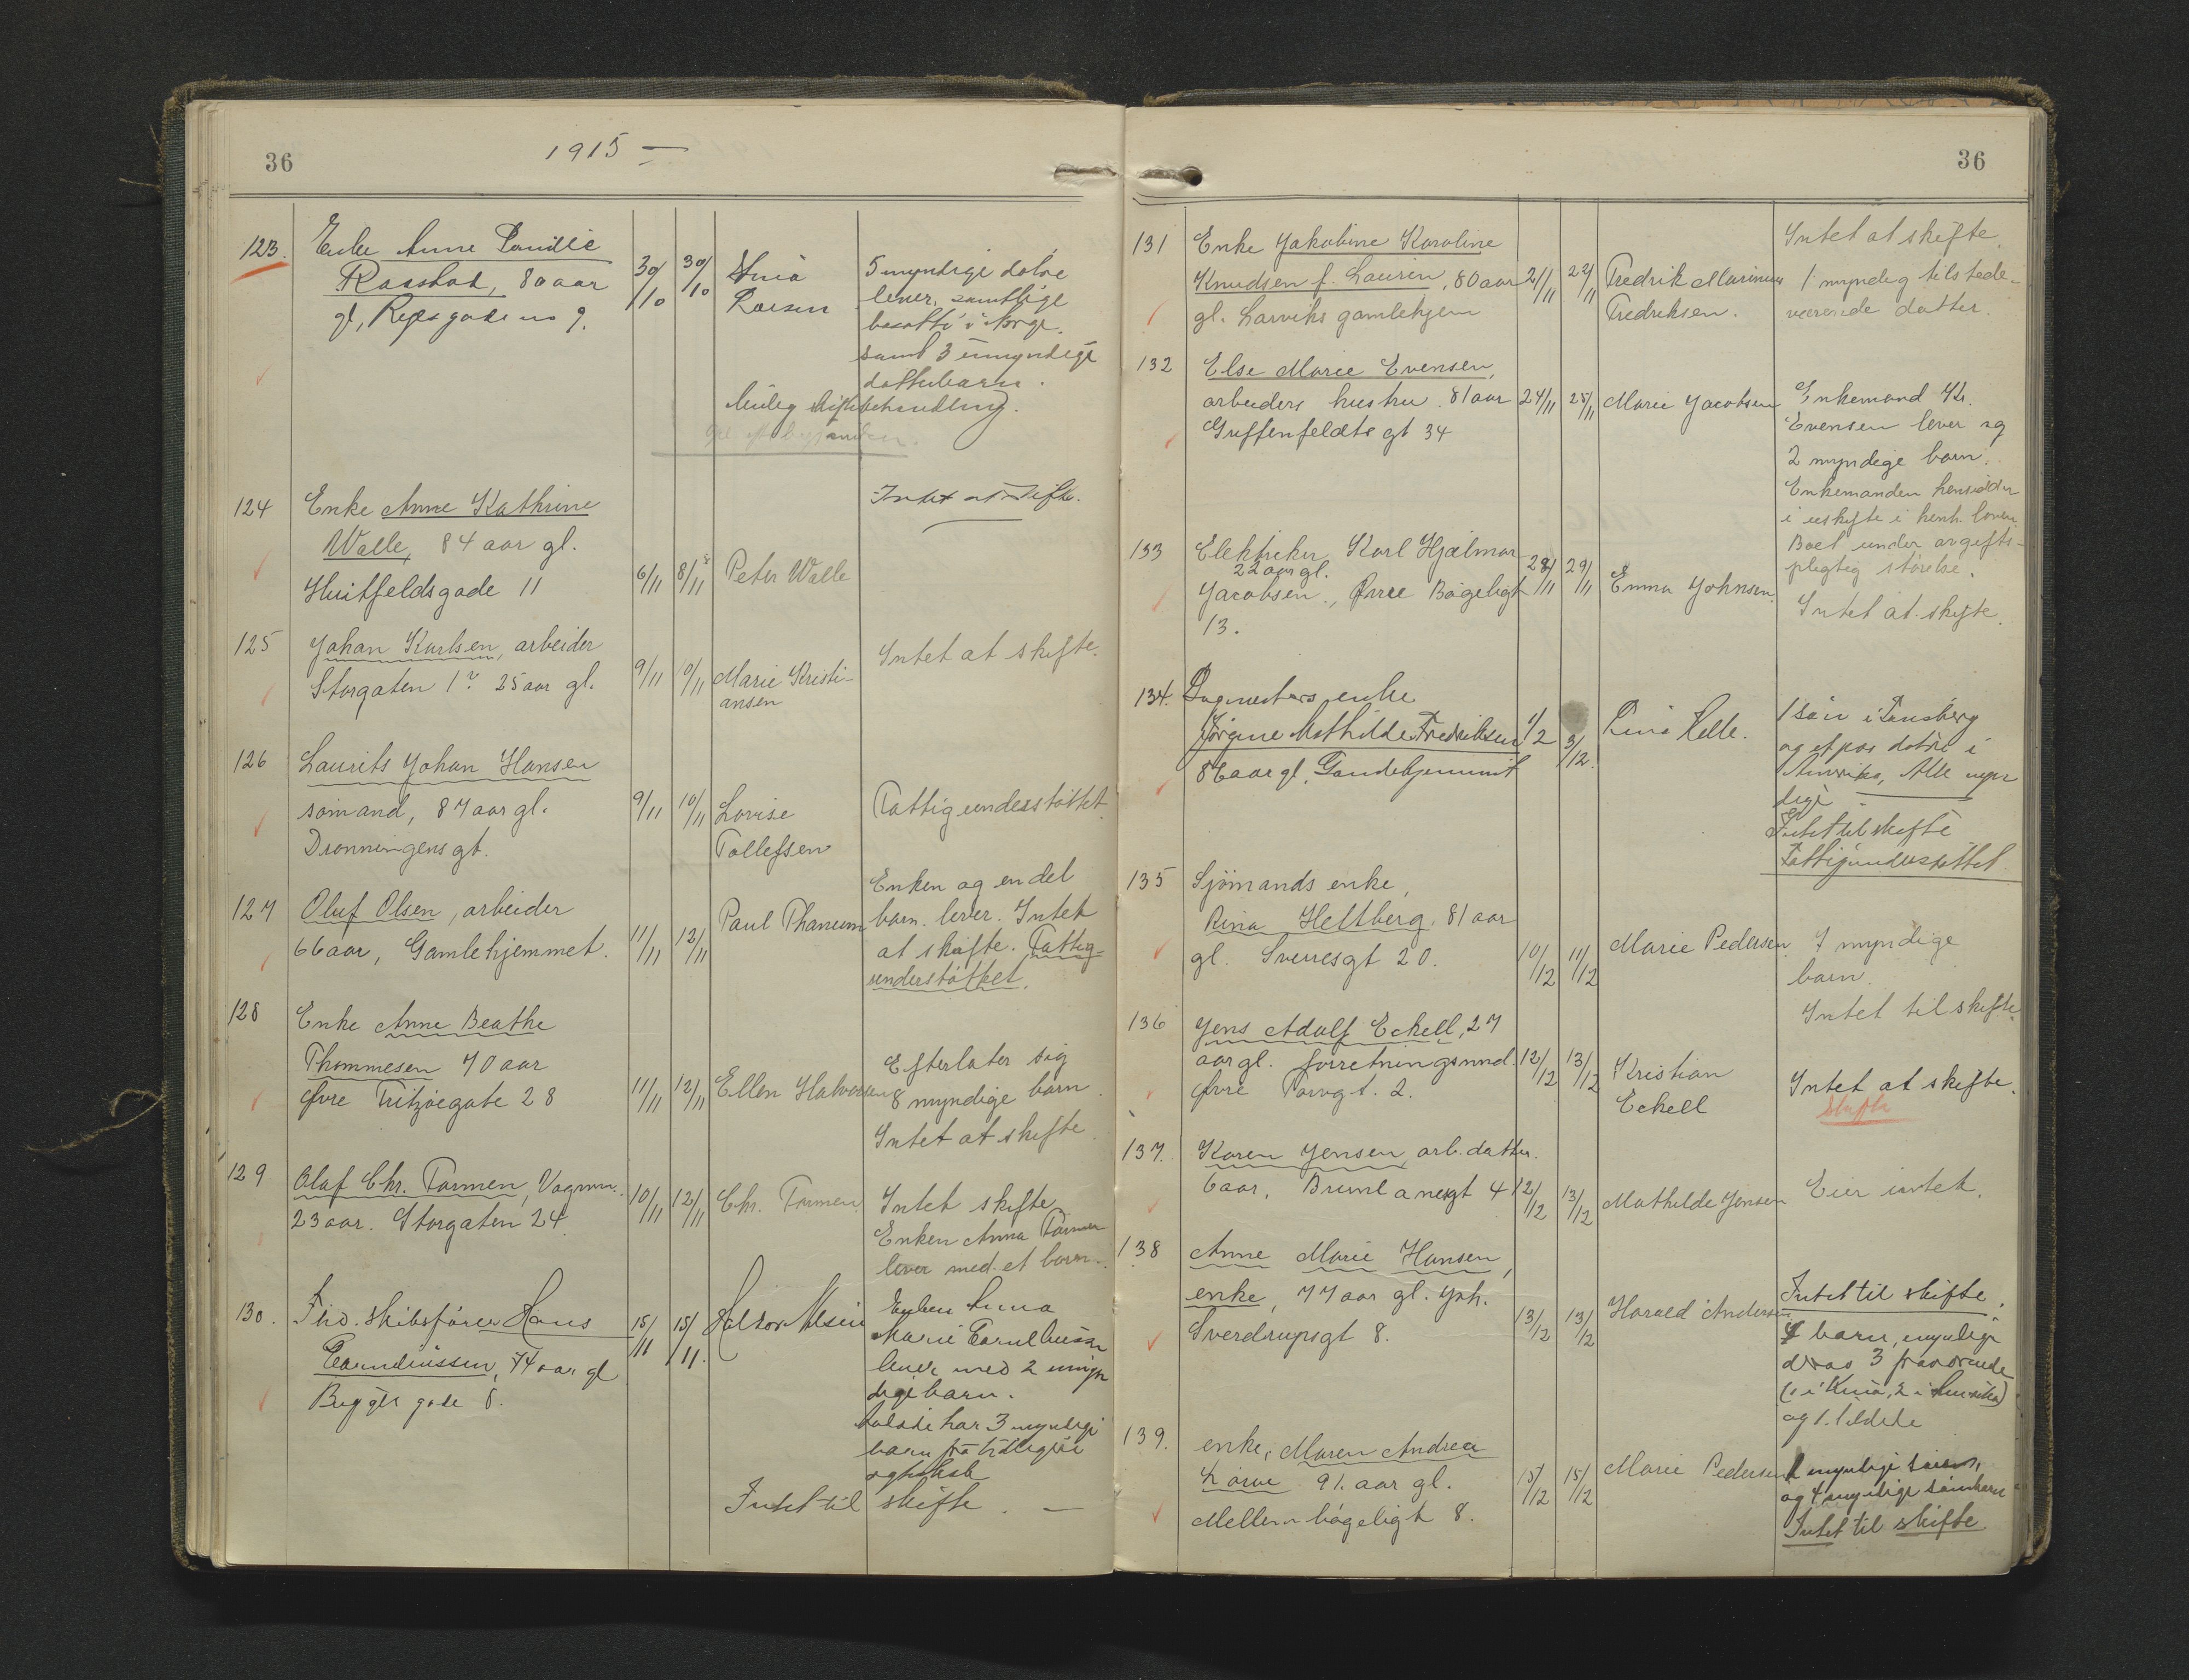 36
1915 —
123.
Enke Anne
80 aar
gl,
30/10
30/10
5 myndige døtre
lever, samtlige
bosatte i Norge,
samt 3 umyndige
datterbarn.
124
Enke Anne Kathrine
Walle, 84 aar gl.
Huitfeldsgade 11
6/11
8/11
Peter Walle
Intet at skifte.
125
Johan Karlsen, arbeider
Storgaten 25 aar gl.
9/11
10/11
Marie Kristi-
ansen
Intet at skifte.
126
Laurits Johan Hansen
sømand, 87 aar gl.
Dronningens gt.
9/11
10/11
Lovise
Tollefsen
Fattigunderstøttet.
127
Oluf Olsen, arbeider
66 aar, Gamlehjemmet.
11/11
12/11
Paul Thaneum
Enken og en del
barn lever. Intet
at skifte. Fattig-
understøttet.
128
Enke Anne Beathe
Thommesen 70 aar
Øvre Fritzøegate 28
11/11
12/11
Ellen Halvorsen
Efterlater sig
8 myndige barn
Intet at skifte.
129
Olaf Chr. Farmen, Vognm.
23 aar. Storgaten 24.
10/11
12/11
Chr. Farmen
Intet skifte
Enken Anna Farmen
lever med et barn.
130.
Fhv. skibsfører Hans
74 aar gl
gade 8.
15/11
15/11.
Enken
Marie
lever med 2 umyn
dige barn.
har 3 myndige
barn fra tidligere
Intet til skifte. —
36
131
Enke Jakobine Karoline
Knudsen f. Laurin, 80 aar
gl. Larviks gamlehjem
21/11
22/11
Fredrik Marinius
Fredriksen.
Intet at skifte.
1 myndig tilstede-
værende datter.
132
Else Marie Evensen,
arbeiders hustru. 81 aar
Griffenfeldts gt 34
24/11
25/11
Marie Jacobsen
Enkemand Kr.
Evensen lever og
2 myndige barn.
Enkemanden hensidder
i uskifte i henh. loven.
Boet under avgifts-
pligtig størelse.
133
Elektriker Karl Hjalmar
22 aar gl.
Jacobsen., Øvre Bøgeligt
13.
28/11
29/11
Emma Johnsen.
Intet at skifte.
134.
enke
Jørgine Mathilde Fredriksen
86 aar gl.
1/12
3/12.
1 søn i Tønsberg
og et par døtre i
Amerika, Alle myn
dige.
Intet til skifte
Fattigunderstøttet
135
Sjømands enke,
Rina Heltberg. 81 aar
gl. Sverresgt 20.
10/12
11/12
Marie Pedersen.
7 myndige
barn.
Intet til skifte.
136
Jens Adolf Eckell, 27
aar gl. forretningsmd.
Øvre Torvgt. 2.
12/12
13/12
Kristian
Eckell
Intet at skifte.
Skifte
137.
Karen Jensen, arb. datter.
6 aar. Brunlanesgt 4
12/12
13/12
Mathilde Jensen
Eier intet.
138
Anne Marie Hansen,
enke, 77 aar gl. Joh.
Sverdrupsgt 8.
13/12
13/12
Harald Andersen
Intet til skifte.
barn, myndige
derav 3 fraværende
2 i Amerika)
139.
enke, Maren Andrea
Lorve 91. aar gl.
Mellem bøgeligt 8.
15/12
15/12
Marie Pedersen
og 4 myndige sønnebarn
Intet til skifte